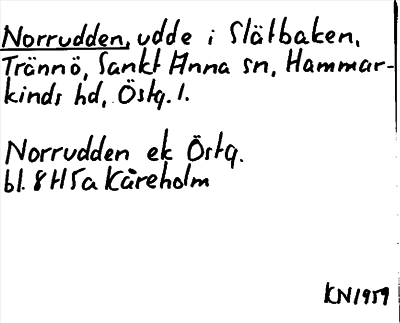 Norrudden, udde i Slätbaken,
Trännö, Sankt Anna sn, Hammar-
kinds hd, Östg. l.
Norrudden ek Östg.
bl. 8 H 5a Kåreholm
KN 1959